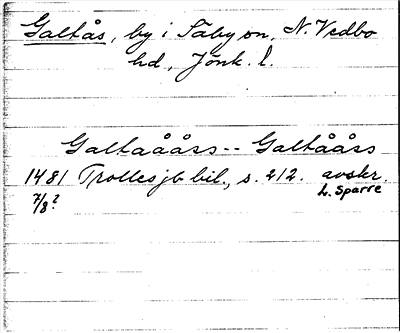 Galtås, by i Säby sn, N. Vedbo
hd, Jönk. l.
Galtaååss -- Galtååss
1481 Trolles jb bil., s. 212. avskr.
7/8? L. Sparre